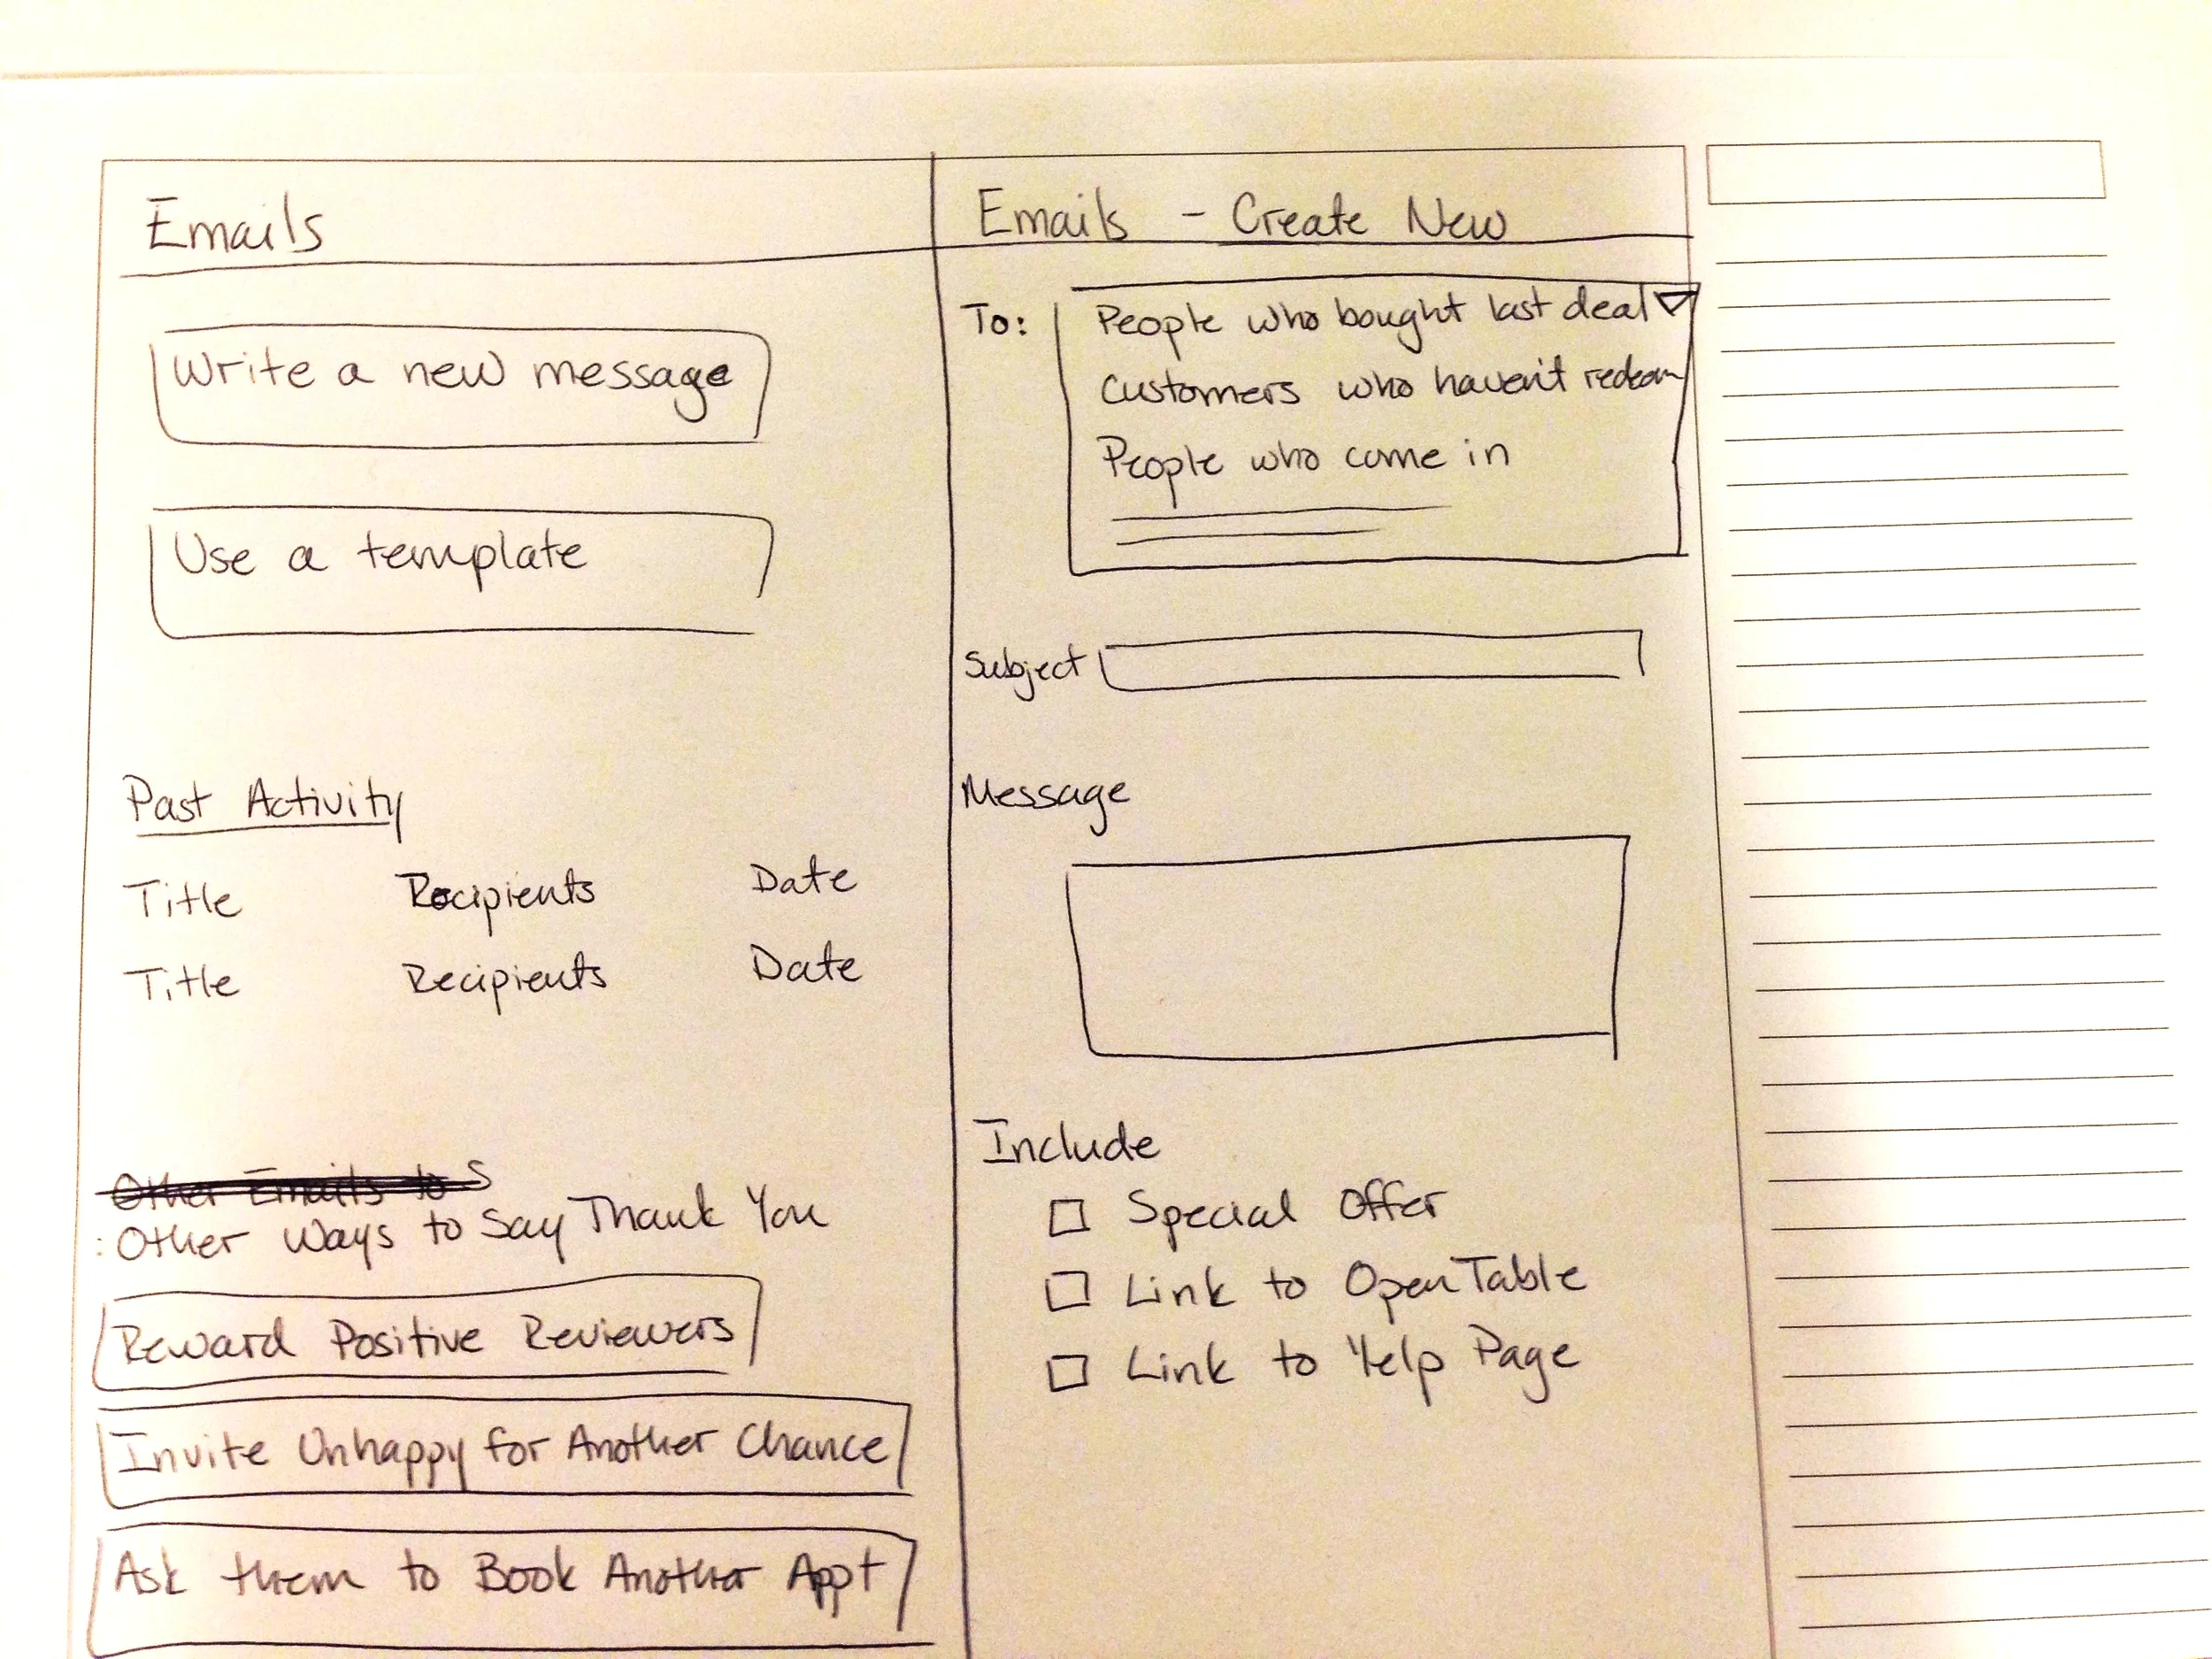 Emails
Write a new message
Use a template
Past Activity
Title Recipients Date
Title Recipients Date
Other Emails to S
: Other Ways to Say Thank You
Reward Positive Reviewers
Invite Unhappy for Another Chance
Ask them to Book Another Appt
Emails - Create New
To: People who bought last deal
Customers who haven't redeem
People who come in
Subject
Message
Include
Special Offer
Link to OpenTable
Link to Yelp Page